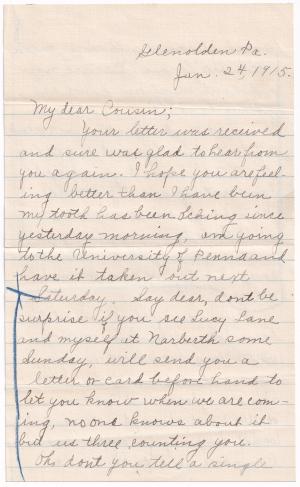 Glenolden Pa.
Jan. 24, 1915.
My dear Cousin;
Your letter was received
and sure was glad to hear from
you again. I hope you are feel-
ing better than I have been
my tooth has been aching since
yesterday morning, am going
to the University of Penna and
have it taken out next
Saturday. Say dear, dont be
surprise if you see Lucy Lane
and myself at Narberth some
Sunday, will send you a
letter or card before hand to
let you know when we are com-
ing, no one knows about it
but us three counting you.
Oh, dont you tell a single